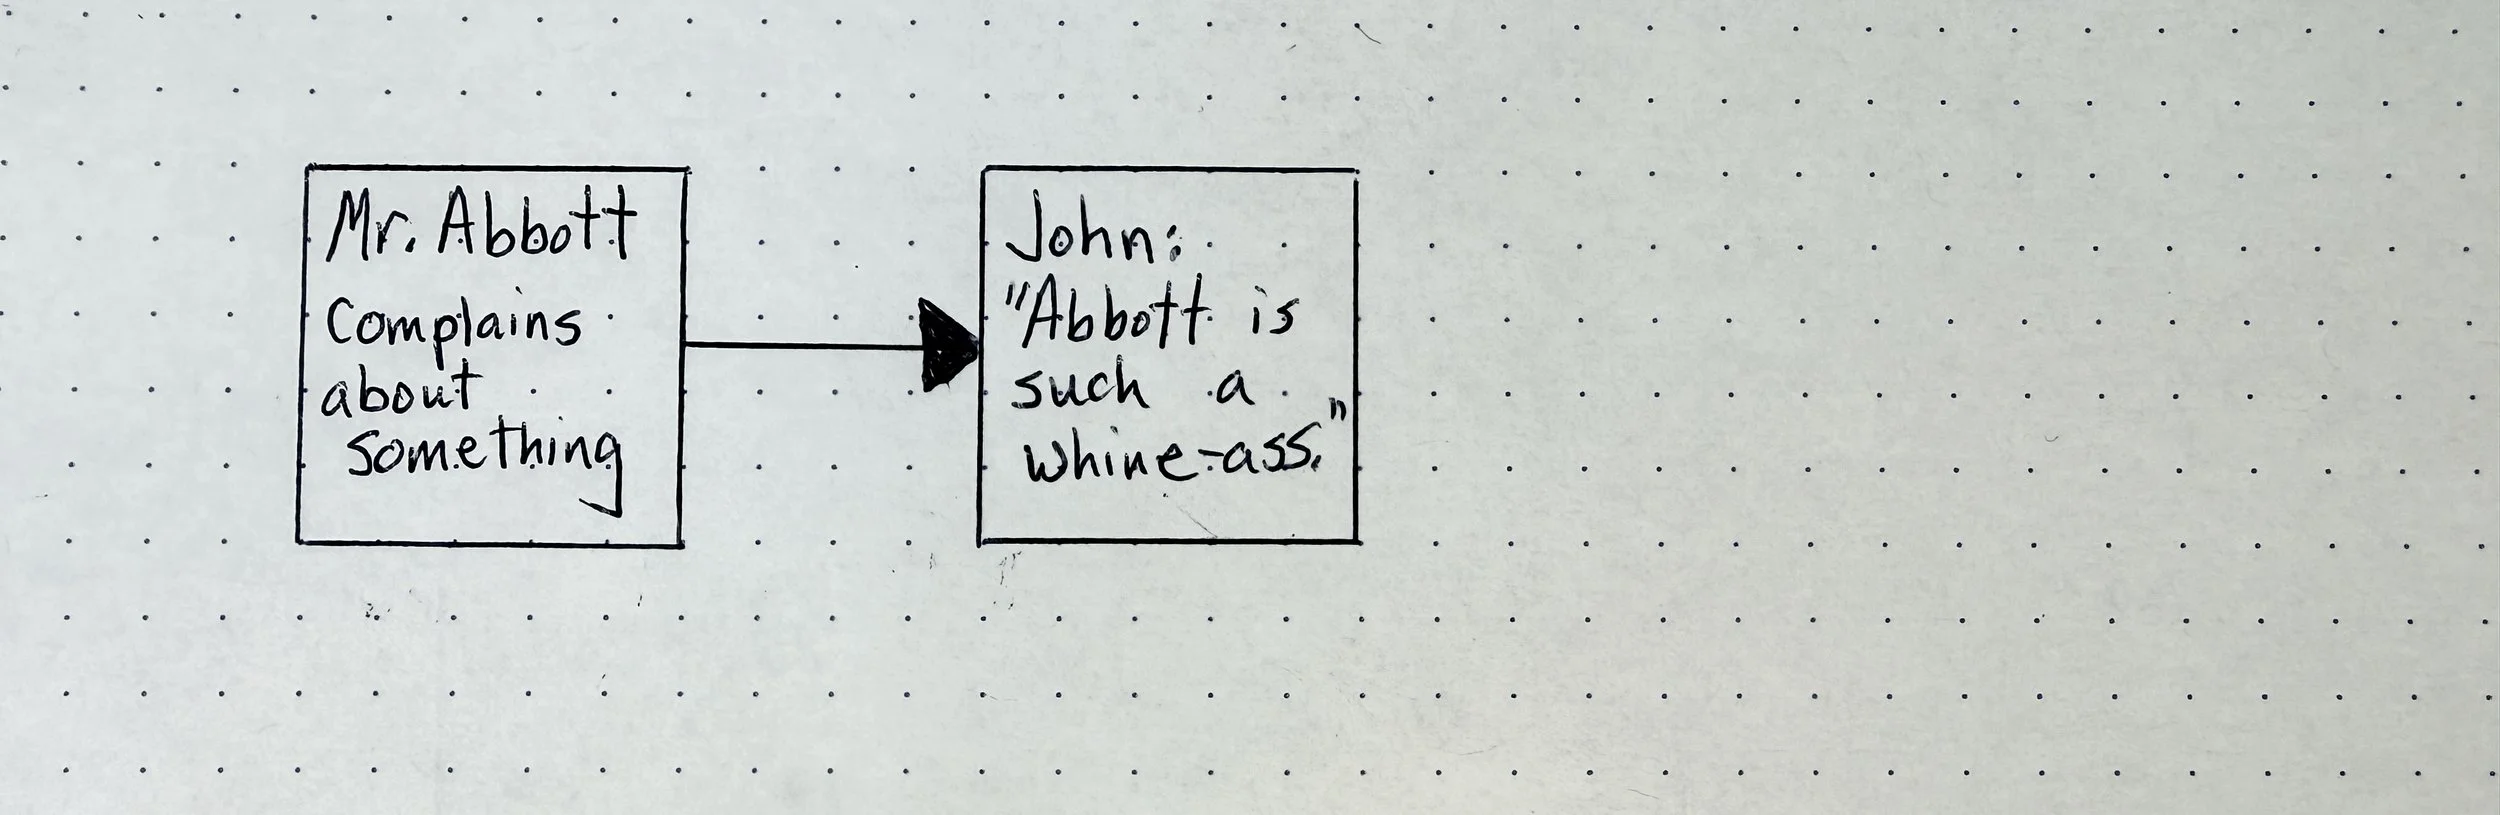 Mr. Abbott
Complains
about
something
John:
"Abbott is
such a
whine-ass."